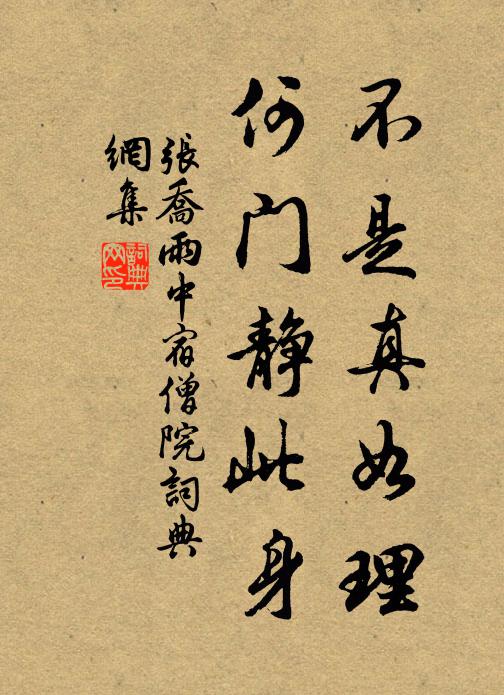 不是真如理
何门静此身
張喬雨中宿僧院詞典
網集
詞典
网印